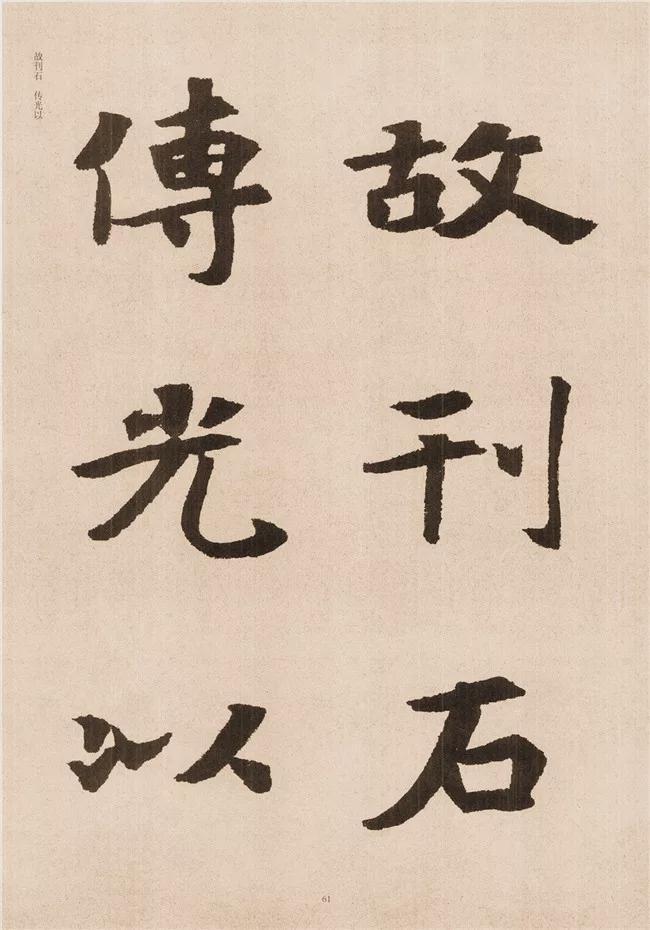 故刊石
傳光以
故刊石 传光以
61